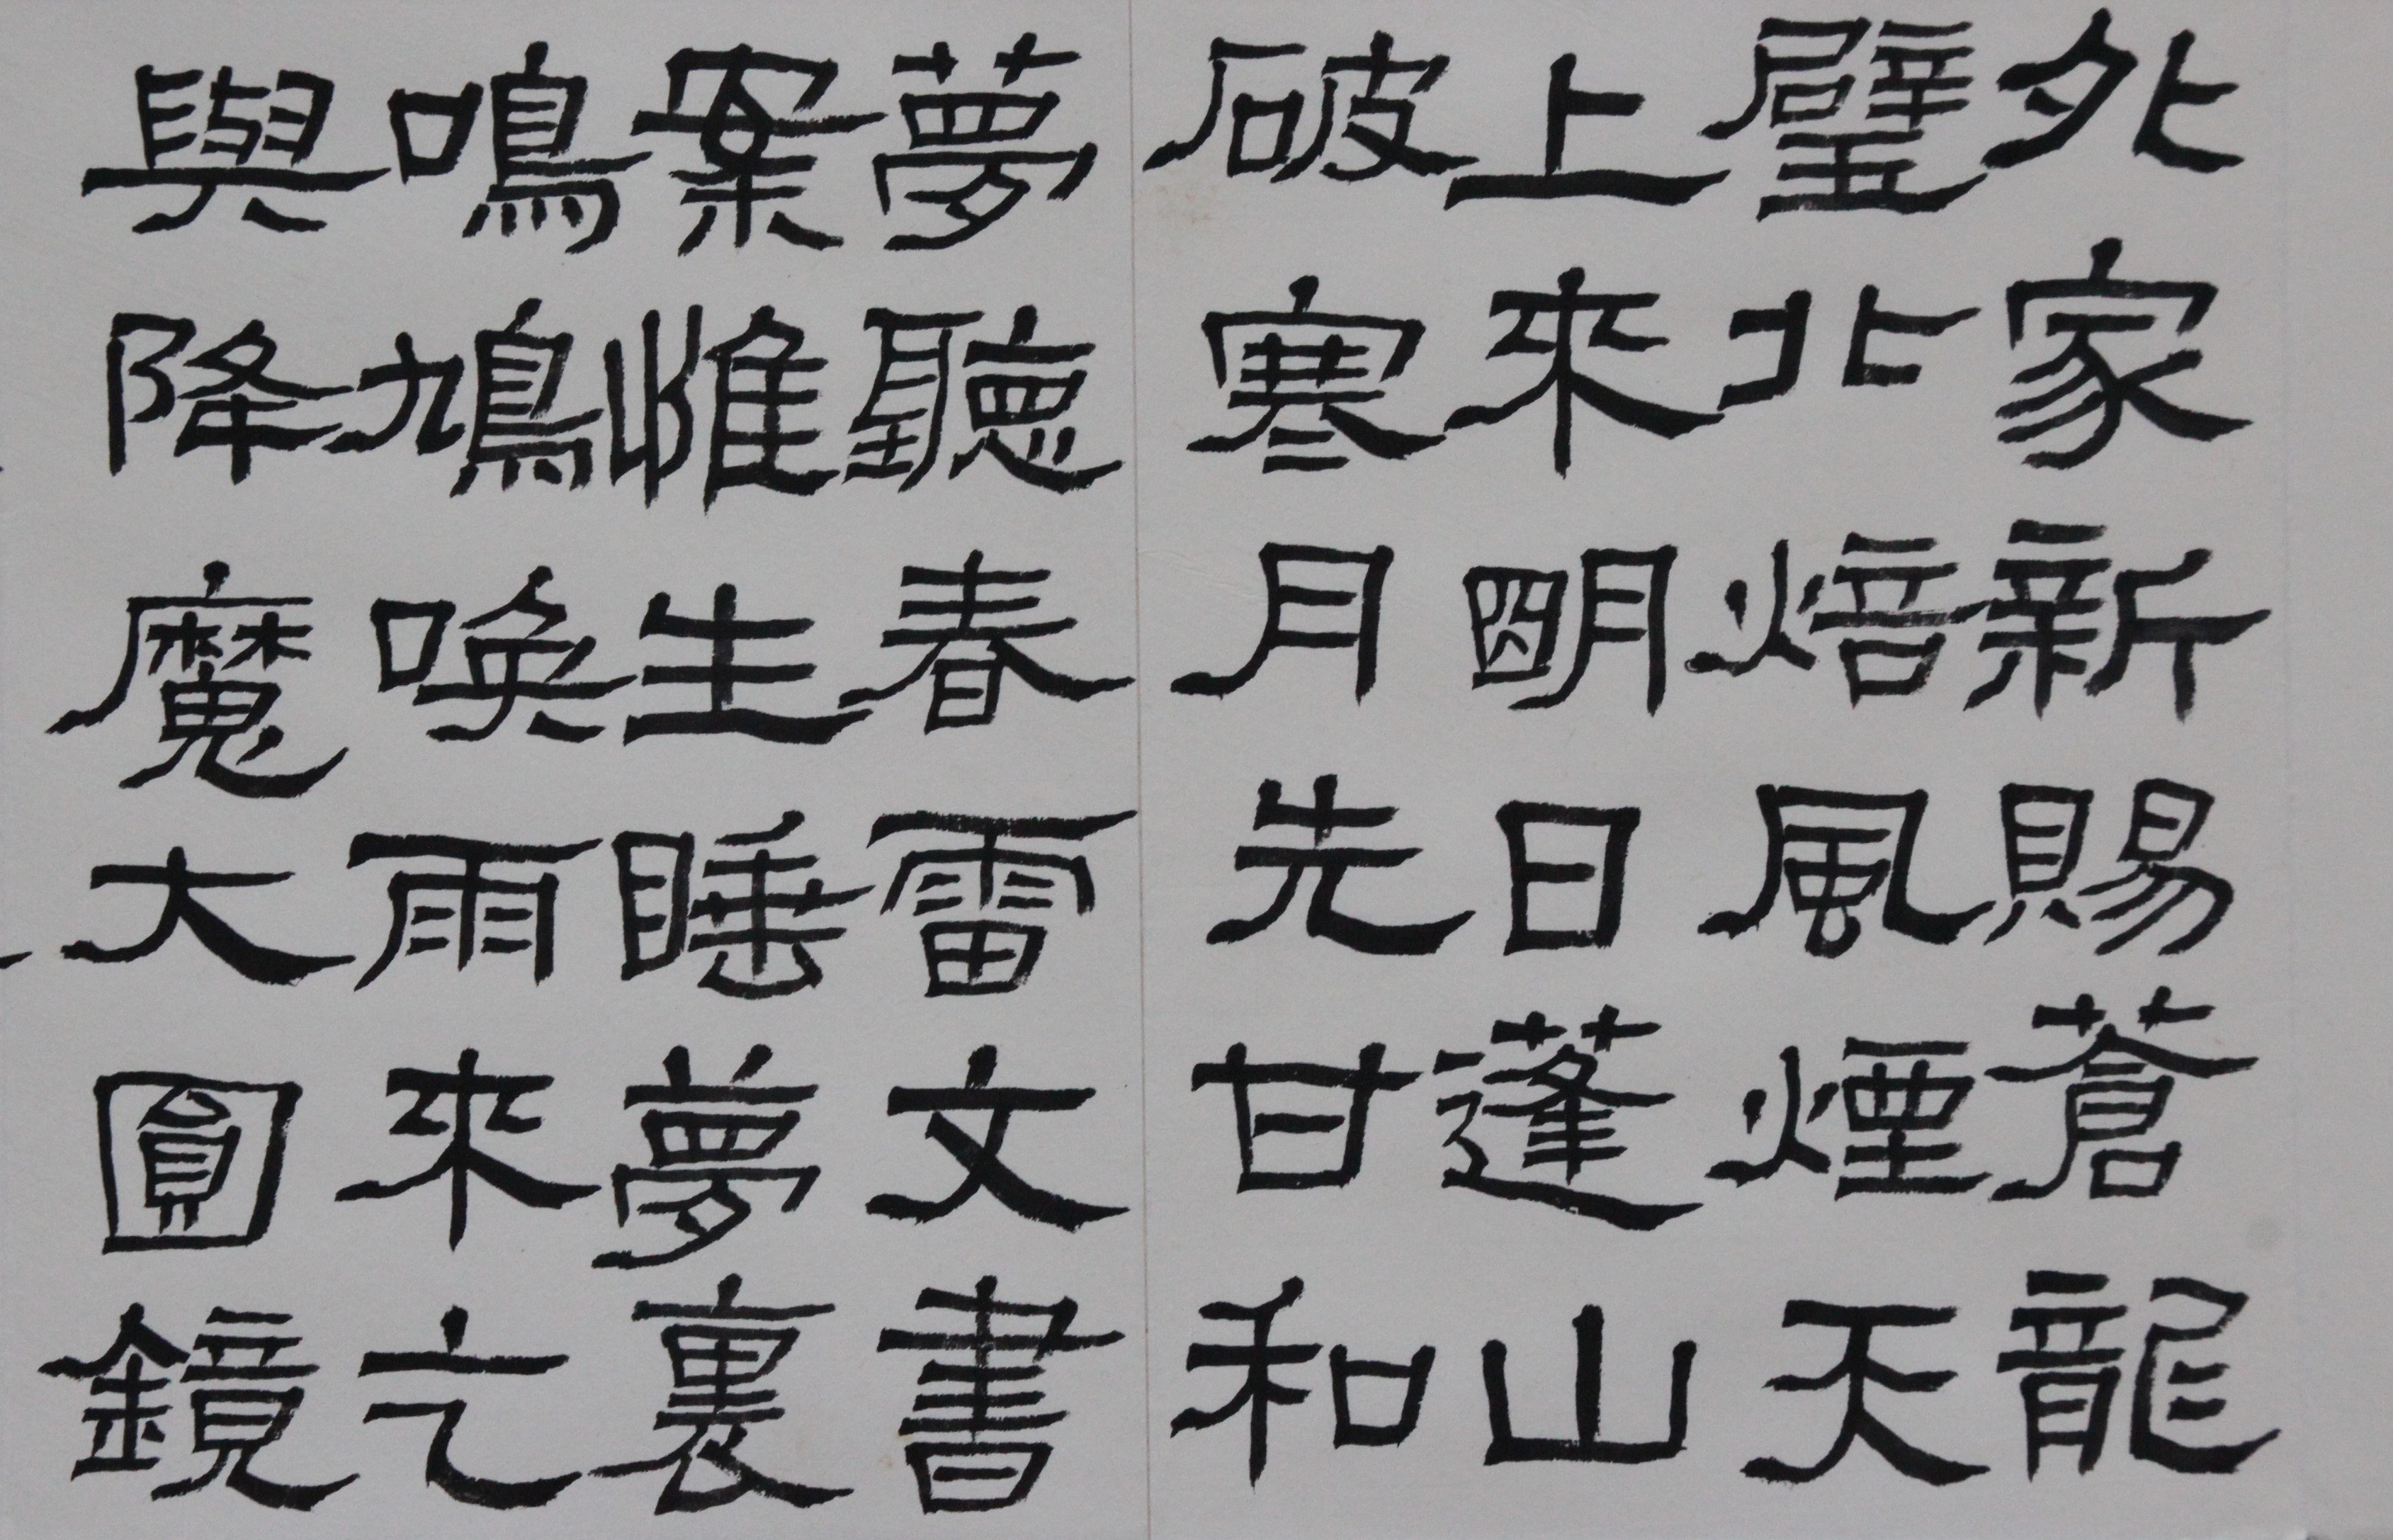 外家新賜蒼龍
璧北焙風煙天
上來明日蓬山
破寒月先甘和
夢聽春雷文書
案惟生睡夢裏
鳴鳩喚雨來之
與降魔大圓鏡